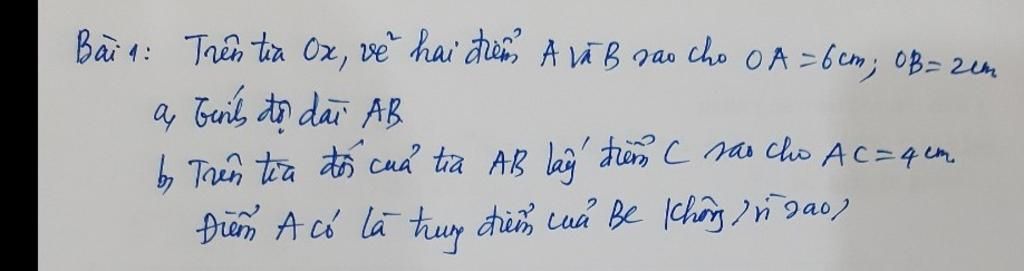 Bài 1: Trên tia Ox, vẽ hai điểm A và B sao cho OA = 6cm; OB = 2cm
a, Tính độ dài AB
b, Trên tia đối của tia AB lấy điểm C sao cho AC = 4 cm.
Điểm A có là trung điểm của BC không? vì sao?